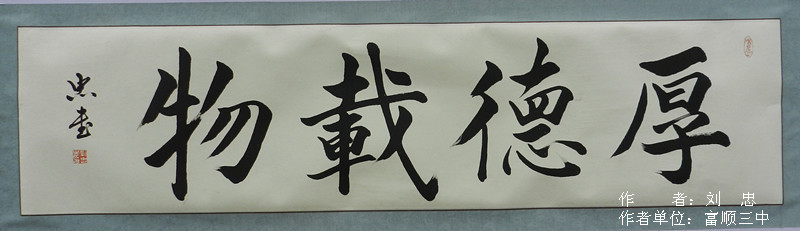 厚德載物
忠書
作　　者：刘　忠
作者单位：富顺三中